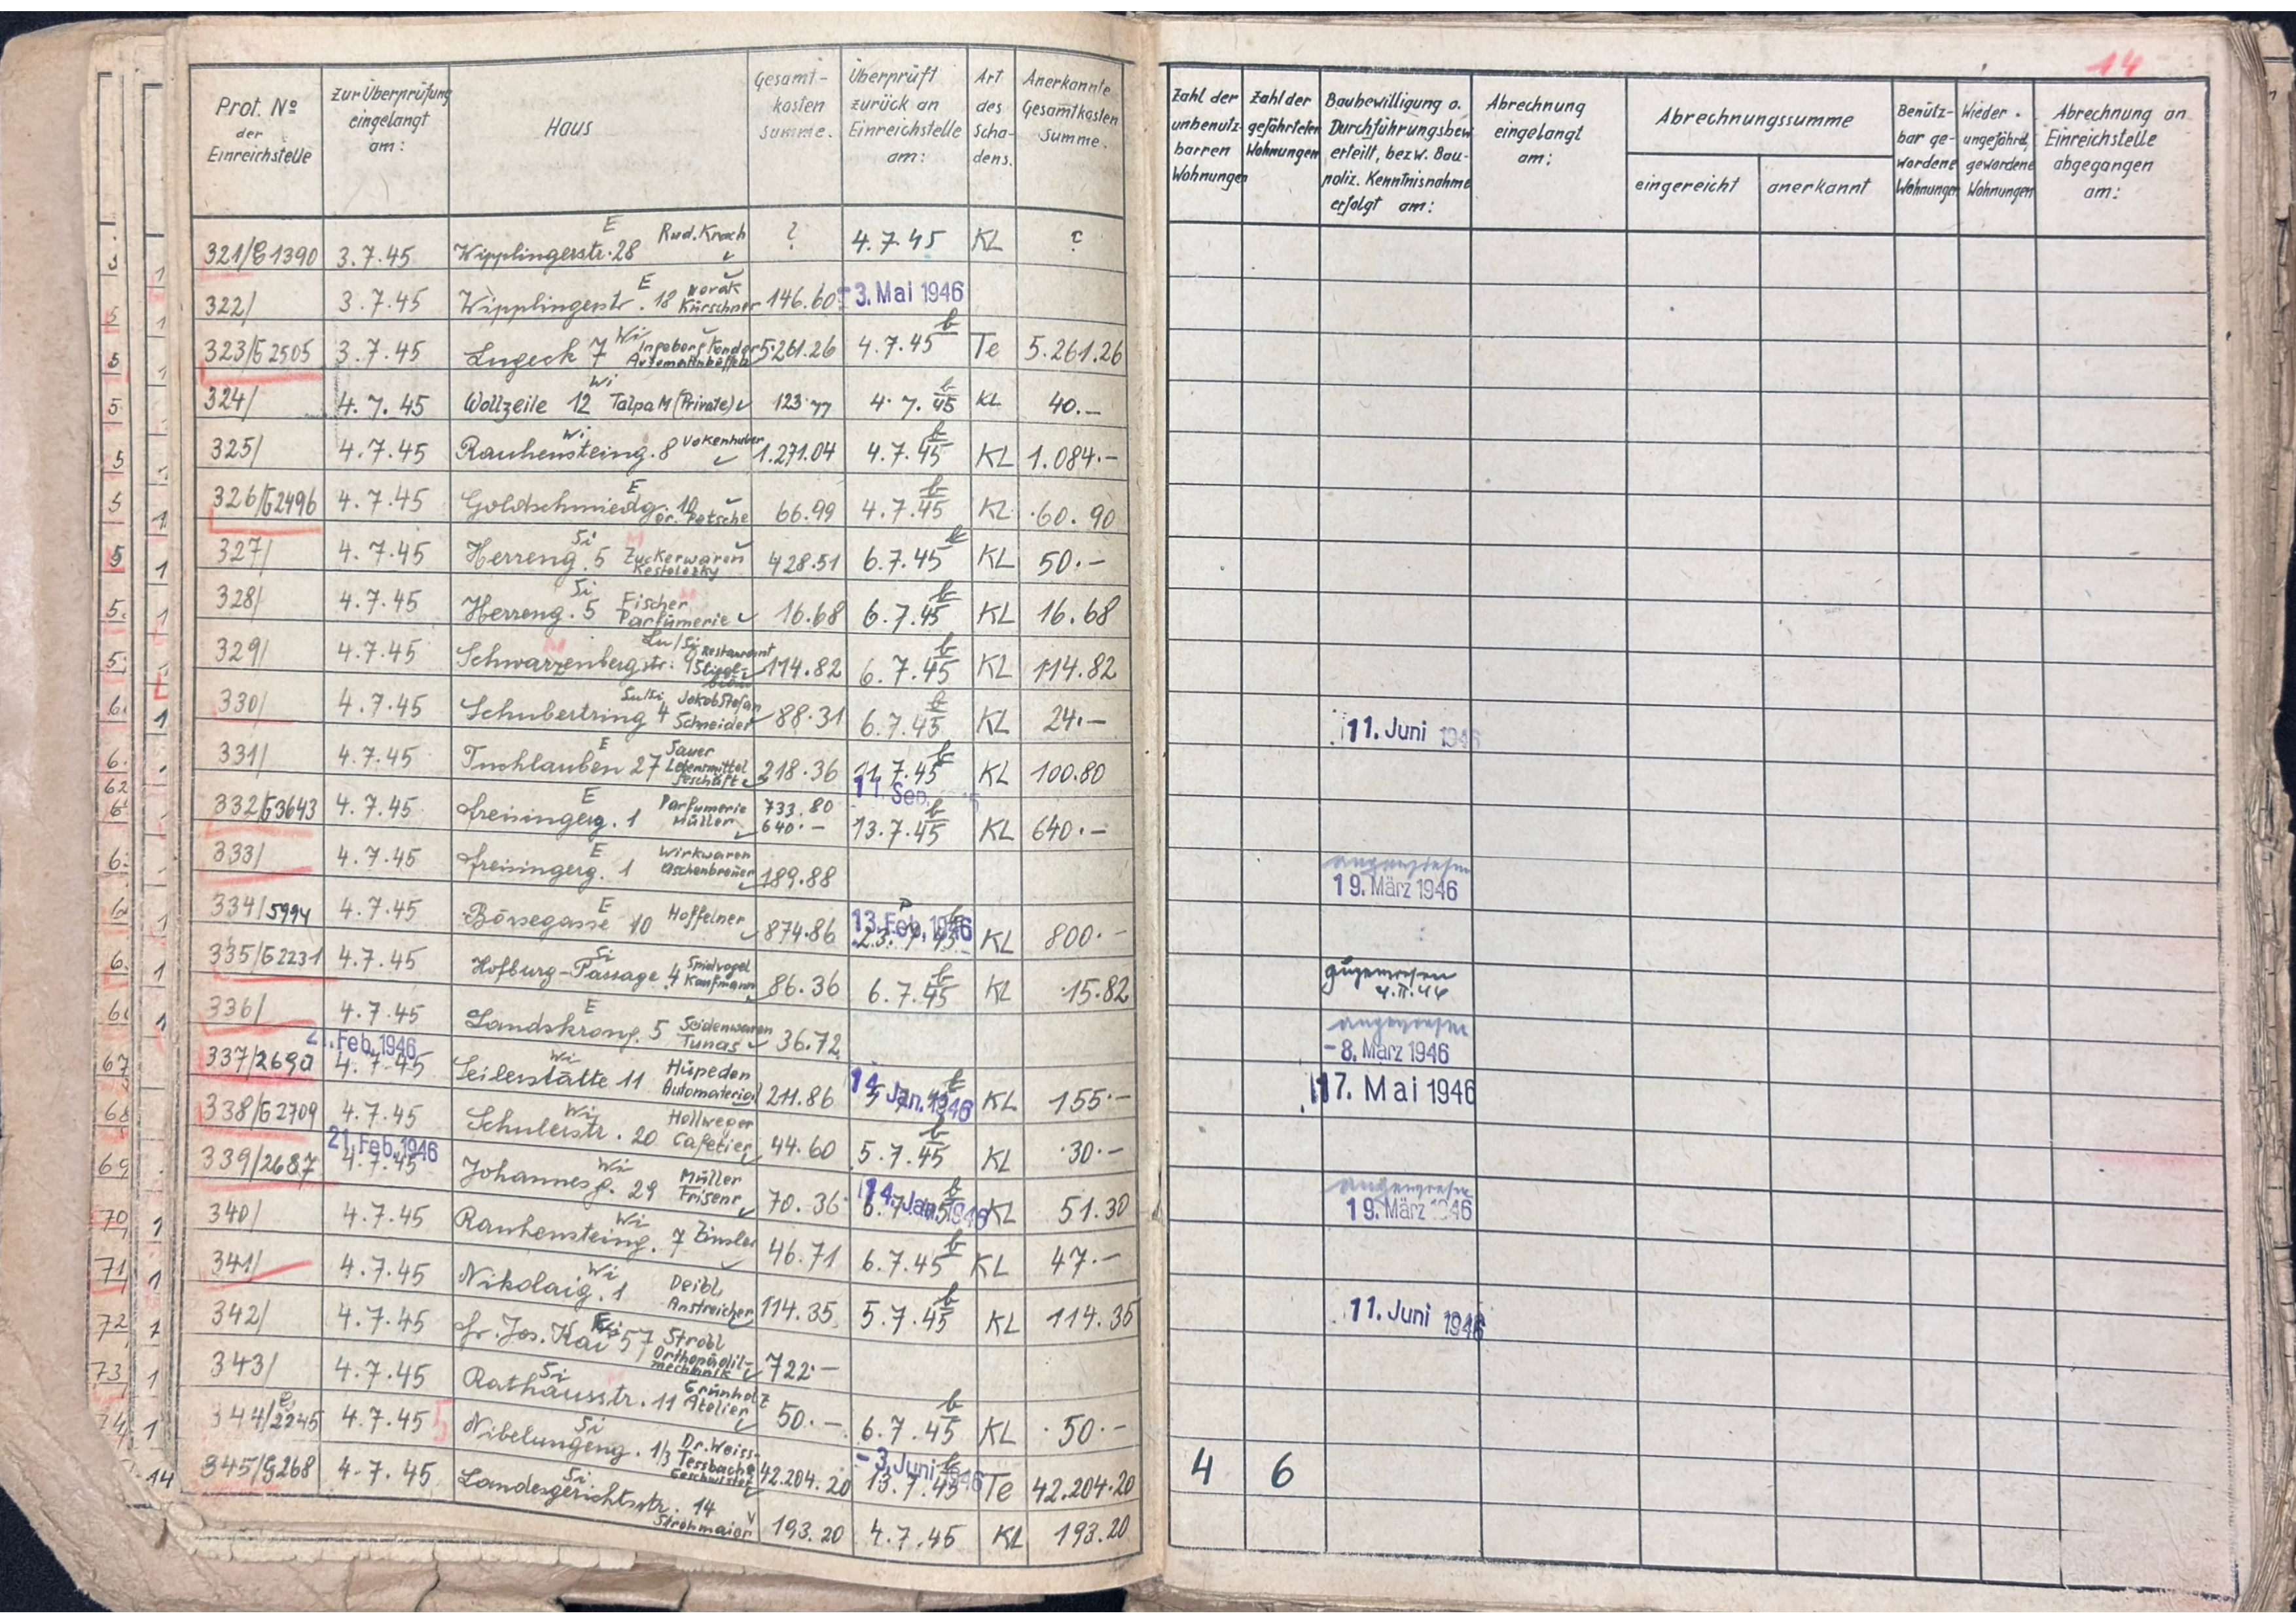 14
Prot. No der Einreichstelle
Zur Überprüfung eingelangt am:
Haus
Gesamt-kosten summe.
Überprüft zurück an Einreichstelle am:
Art des Scha-dens.
Anerkannte Gesamtkosten Summe.
Zahl der unbenutz-barren Wohnungen
Zahl der gefährteten Wohnungen
Baubewilligung o. Durchführungsbew. erteilt, bezw. Bau-poliz. Kenntnisnahme erfolgt am:
Abrechnung eingelangt am:
Abrechnungssumme
eingereicht
anerkannt
Benütz-bar ge-wordene Wohnungen
Wieder ungefährd. gewordene Wohnungen
Abrechnung an Einreichstelle abgegangen am:
321/G1390 3.7.45 Wipplingerstr. 28 E Rud. Krach ? 4.7.45 KL ?
322/ 3.7.45 Wipplingerstr. 18 E Norak Kürschner 146.60 -3. Mai 1946
323/G2505 3.7.45 Lugeck 7 Wi Ingeborg 5.261.26 4.7.45 Te 5.261.26
324/ 4.7.45 Wollzeile 12 Wi Talpa M (Private) 123.77 4.7.45 KL 40.-
325/ 4.7.45 Rauhensteing. 8 Wi Vokenhuber 1.271.04 4.7.45 KL 1.084.-
326/G2496 4.7.45 Goldschmiedg. 10 E Dr. Petsche 66.99 4.7.45 KL 60.90
327/ 4.7.45 Herreng. 5 Si Zuckerwaren 428.51 6.7.45 KL 50.-
328/ 4.7.45 Herreng. 5 Si Fischer Parfümerie 16.68 6.7.45 KL 16.68
329/ 4.7.45 Schwarzenbergstr. Lu/Si Restaurant 114.82 6.7.45 KL 114.82
330/ 4.7.45 Schubertring 4 Lu/Si Jakob Stefan Schneider 88.31 6.7.45 KL 24.- 11. Juni 1946
331/ 4.7.45 Tuchlauben 27 E Sauer Lebensmittel Geschäft 218.36 11.7.45 KL 100.80
332/G3643 4.7.45 Freisingerg. 1 E Parfumerie Müller 733.80 640.- 11. Sep. 13.7.45 KL 640.-
333/ 4.7.45 Freisingerg. 1 E Wirkwaren Aschenbrener 189.88 angewiesen 19. März 1946
334/5994 4.7.45 Börsegasse 10 E Hoffelner 874.86 13. Feb. 1946 KL 800.-
335/G2231 4.7.45 Hofburg-Passage 4 Si Spielvogel Kaufmann 86.36 6.7.45 KL 15.82 angewiesen
336/ 4.7.45 Landskrong. 5 E Seidenwaren Tunas 36.72 angewiesen -8. März 1946
337/2690 21. Feb. 1946 4.7.45 Seilerstätte 11 Wi Hüpeden Automaterial 211.86 14. Jan. 1946 KL 155.- 17. Mai 1946
338/G2709 4.7.45 Schulerstr. 20 Wi Hollweger Cafetier 44.60 5.7.45 KL 30.-
339/2687 21. Feb. 1946 4.7.45 Johannesg. 29 Wi Müller Friseur 70.36 14. Jan. 1946 6.7.45 KL 51.30 angewiesen 19. März 1946
340/ 4.7.45 Rauhensteing. 7 Wi Zinsler 46.71 6.7.45 KL 47.-
341/ 4.7.45 Nikolaig. 1 Wi Deibl Anstreicher 114.35 5.7.45 KL 114.35 11. Juni 1946
342/ 4.7.45 Fr. Jos. Kai 57 Strobl Orthopädil-mechanik 722.-
343/ 4.7.45 Rathausstr. 11 Si Grünholz Atelier 50.- 6.7.45 KL 50.-
344/2245 4.7.45 Nibelungeng. 1/3 Si Dr. Weiss-Tessbach Geschwister 42.204.20 -3. Juni 1946 13.7.45 Te 42.204.20 4 6
345/G268 4.7.45 Landesgerichtsstr. 14 Si Strohmaior 193.20 4.7.45 KL 193.20